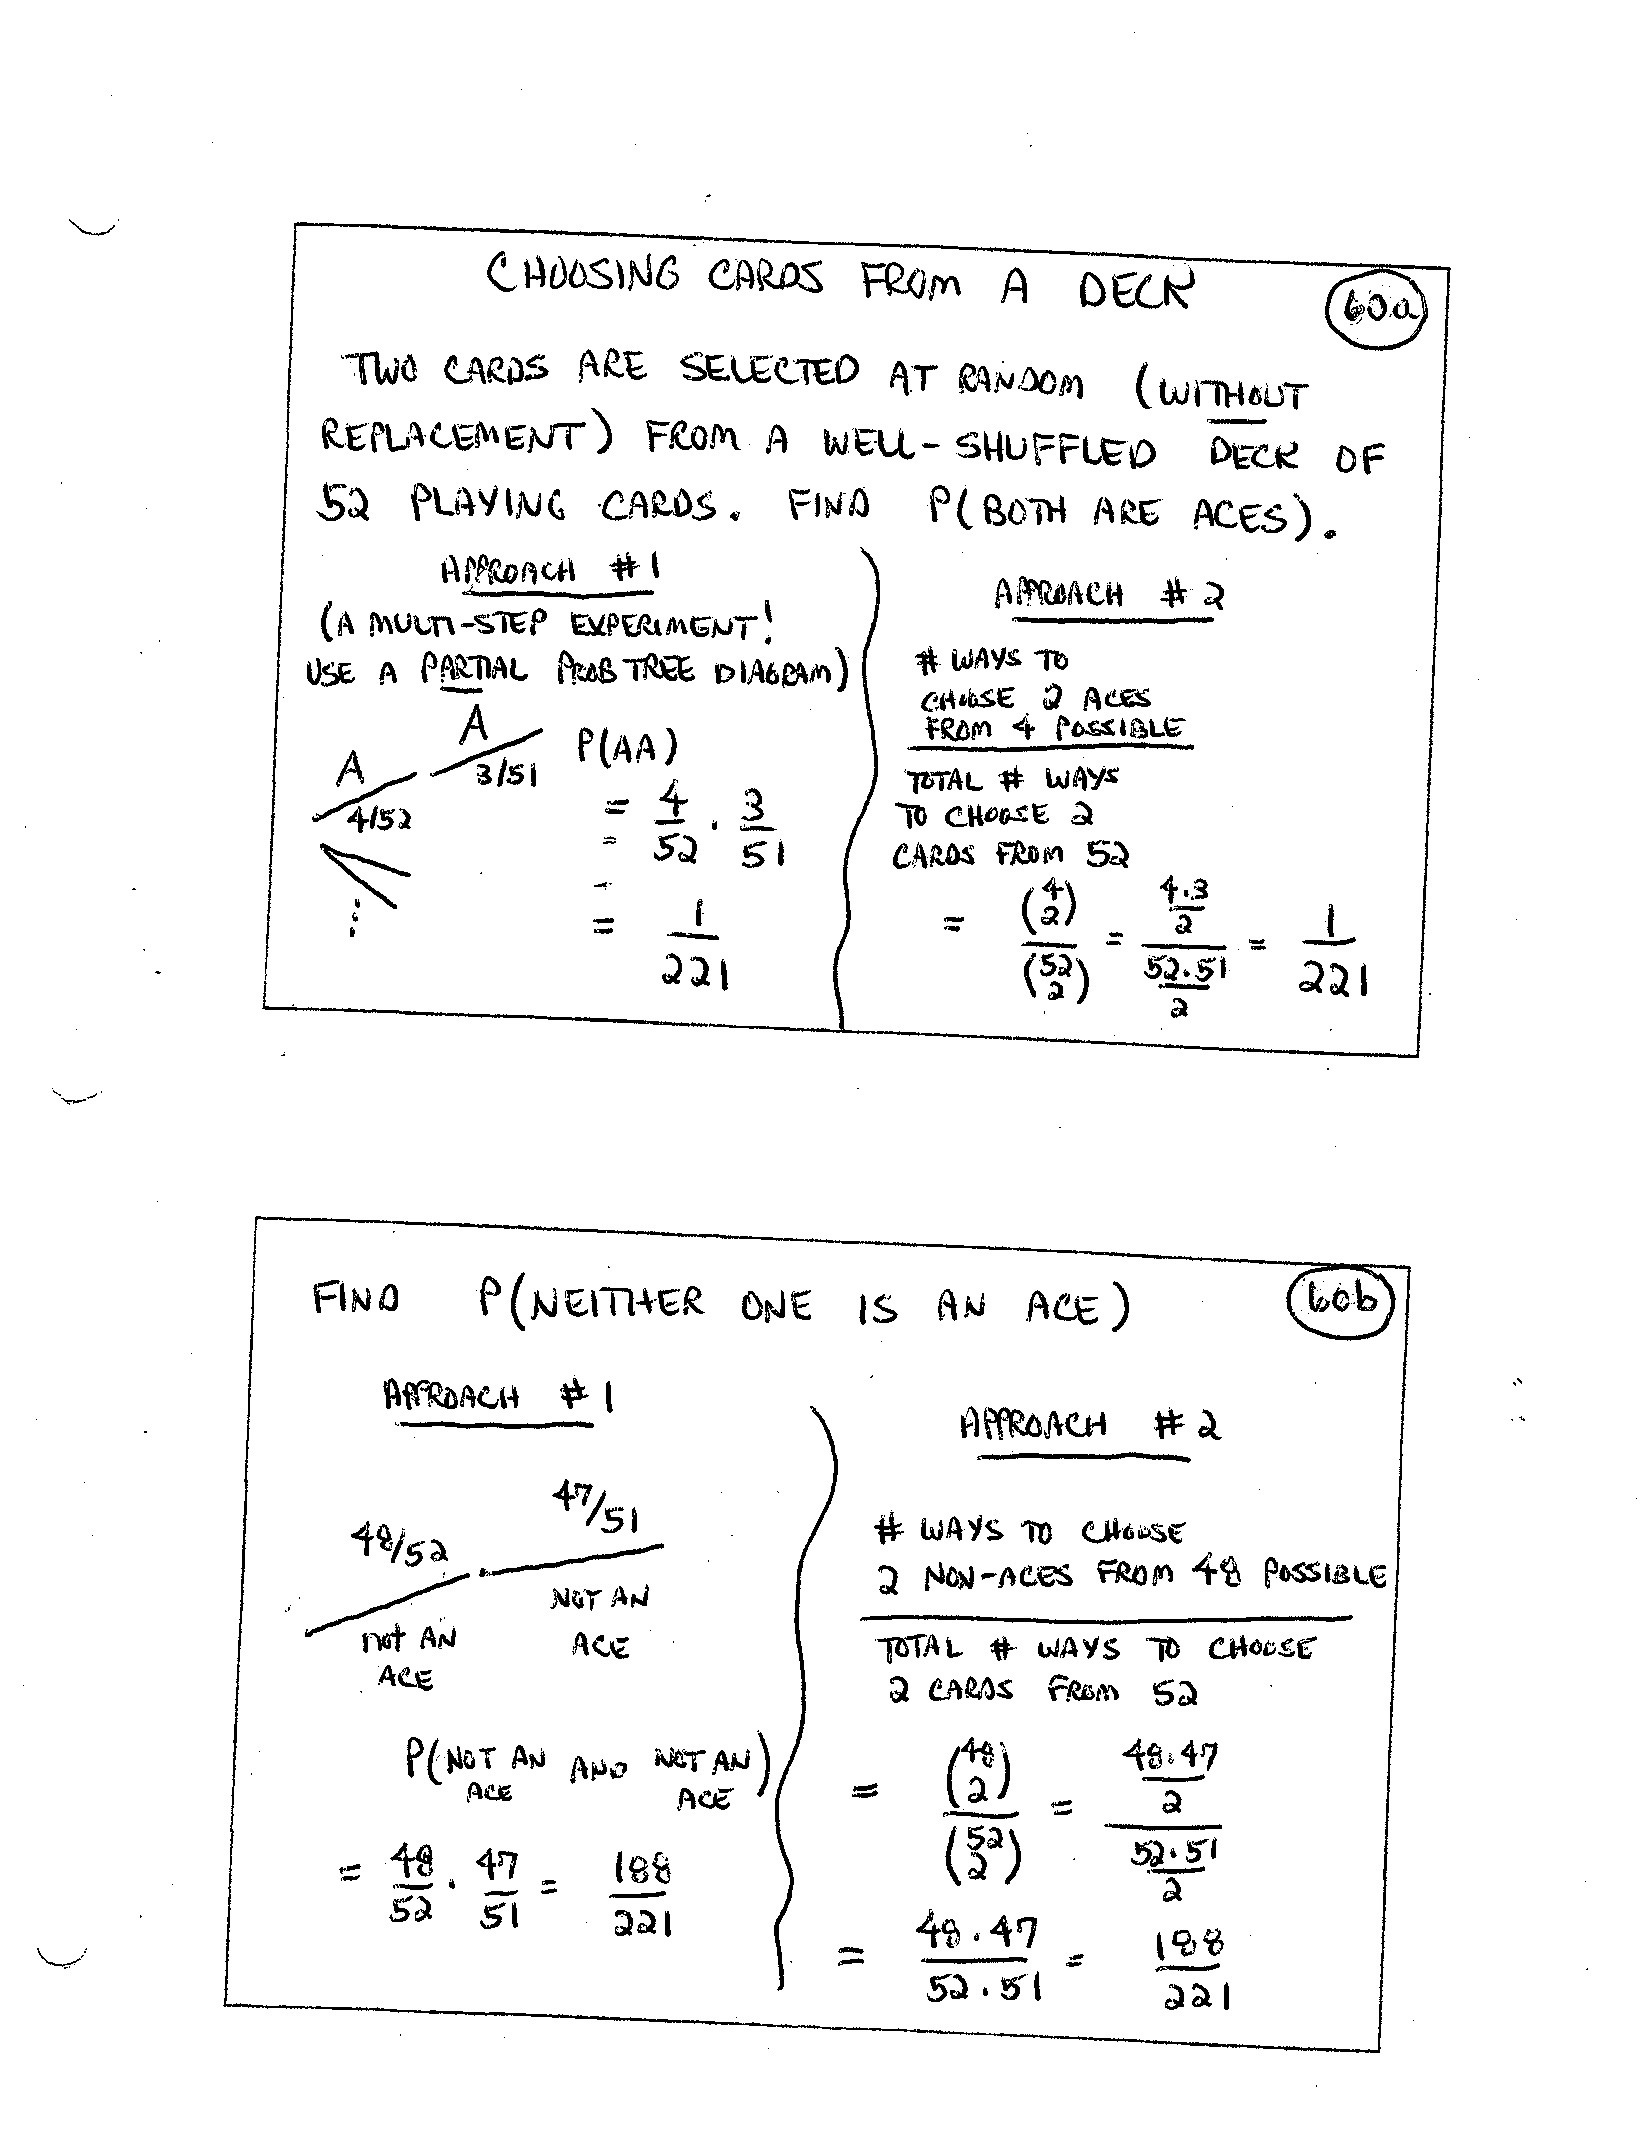 CHOOSING CARDS FROM A DECK
60a
TWO CARDS ARE SELECTED AT RANDOM (WITHOUT
REPLACEMENT) FROM A WELL-SHUFFLED DECK OF
52 PLAYING CARDS. FIND P(BOTH ARE ACES).
APPROACH #1
(A MULTI-STEP EXPERIMENT!
USE A PARTIAL PROB TREE DIAGRAM)
A
A
3/51
4/52
P(AA)
= 4/52 · 3/51
= 1/221
APPROACH #2
# WAYS TO
CHOOSE 2 ACES
FROM 4 POSSIBLE
TOTAL # WAYS
TO CHOOSE 2
CARDS FROM 52
= (4 2)/(52 2) = (4·3/2)/(52·51/2) = 1/221
FIND P(NEITHER ONE IS AN ACE)
60b
APPROACH #1
47/51
48/52
NOT AN
ACE
not AN
ACE
P(NOT AN ACE AND NOT AN ACE)
= 48/52 · 47/51 = 188/221
APPROACH #2
# WAYS TO CHOOSE
2 NON-ACES FROM 48 POSSIBLE
TOTAL # WAYS TO CHOOSE
2 CARDS FROM 52
= (48 2)/(52 2) = (48·47/2)/(52·51/2)
= 48·47/52·51 = 188/221